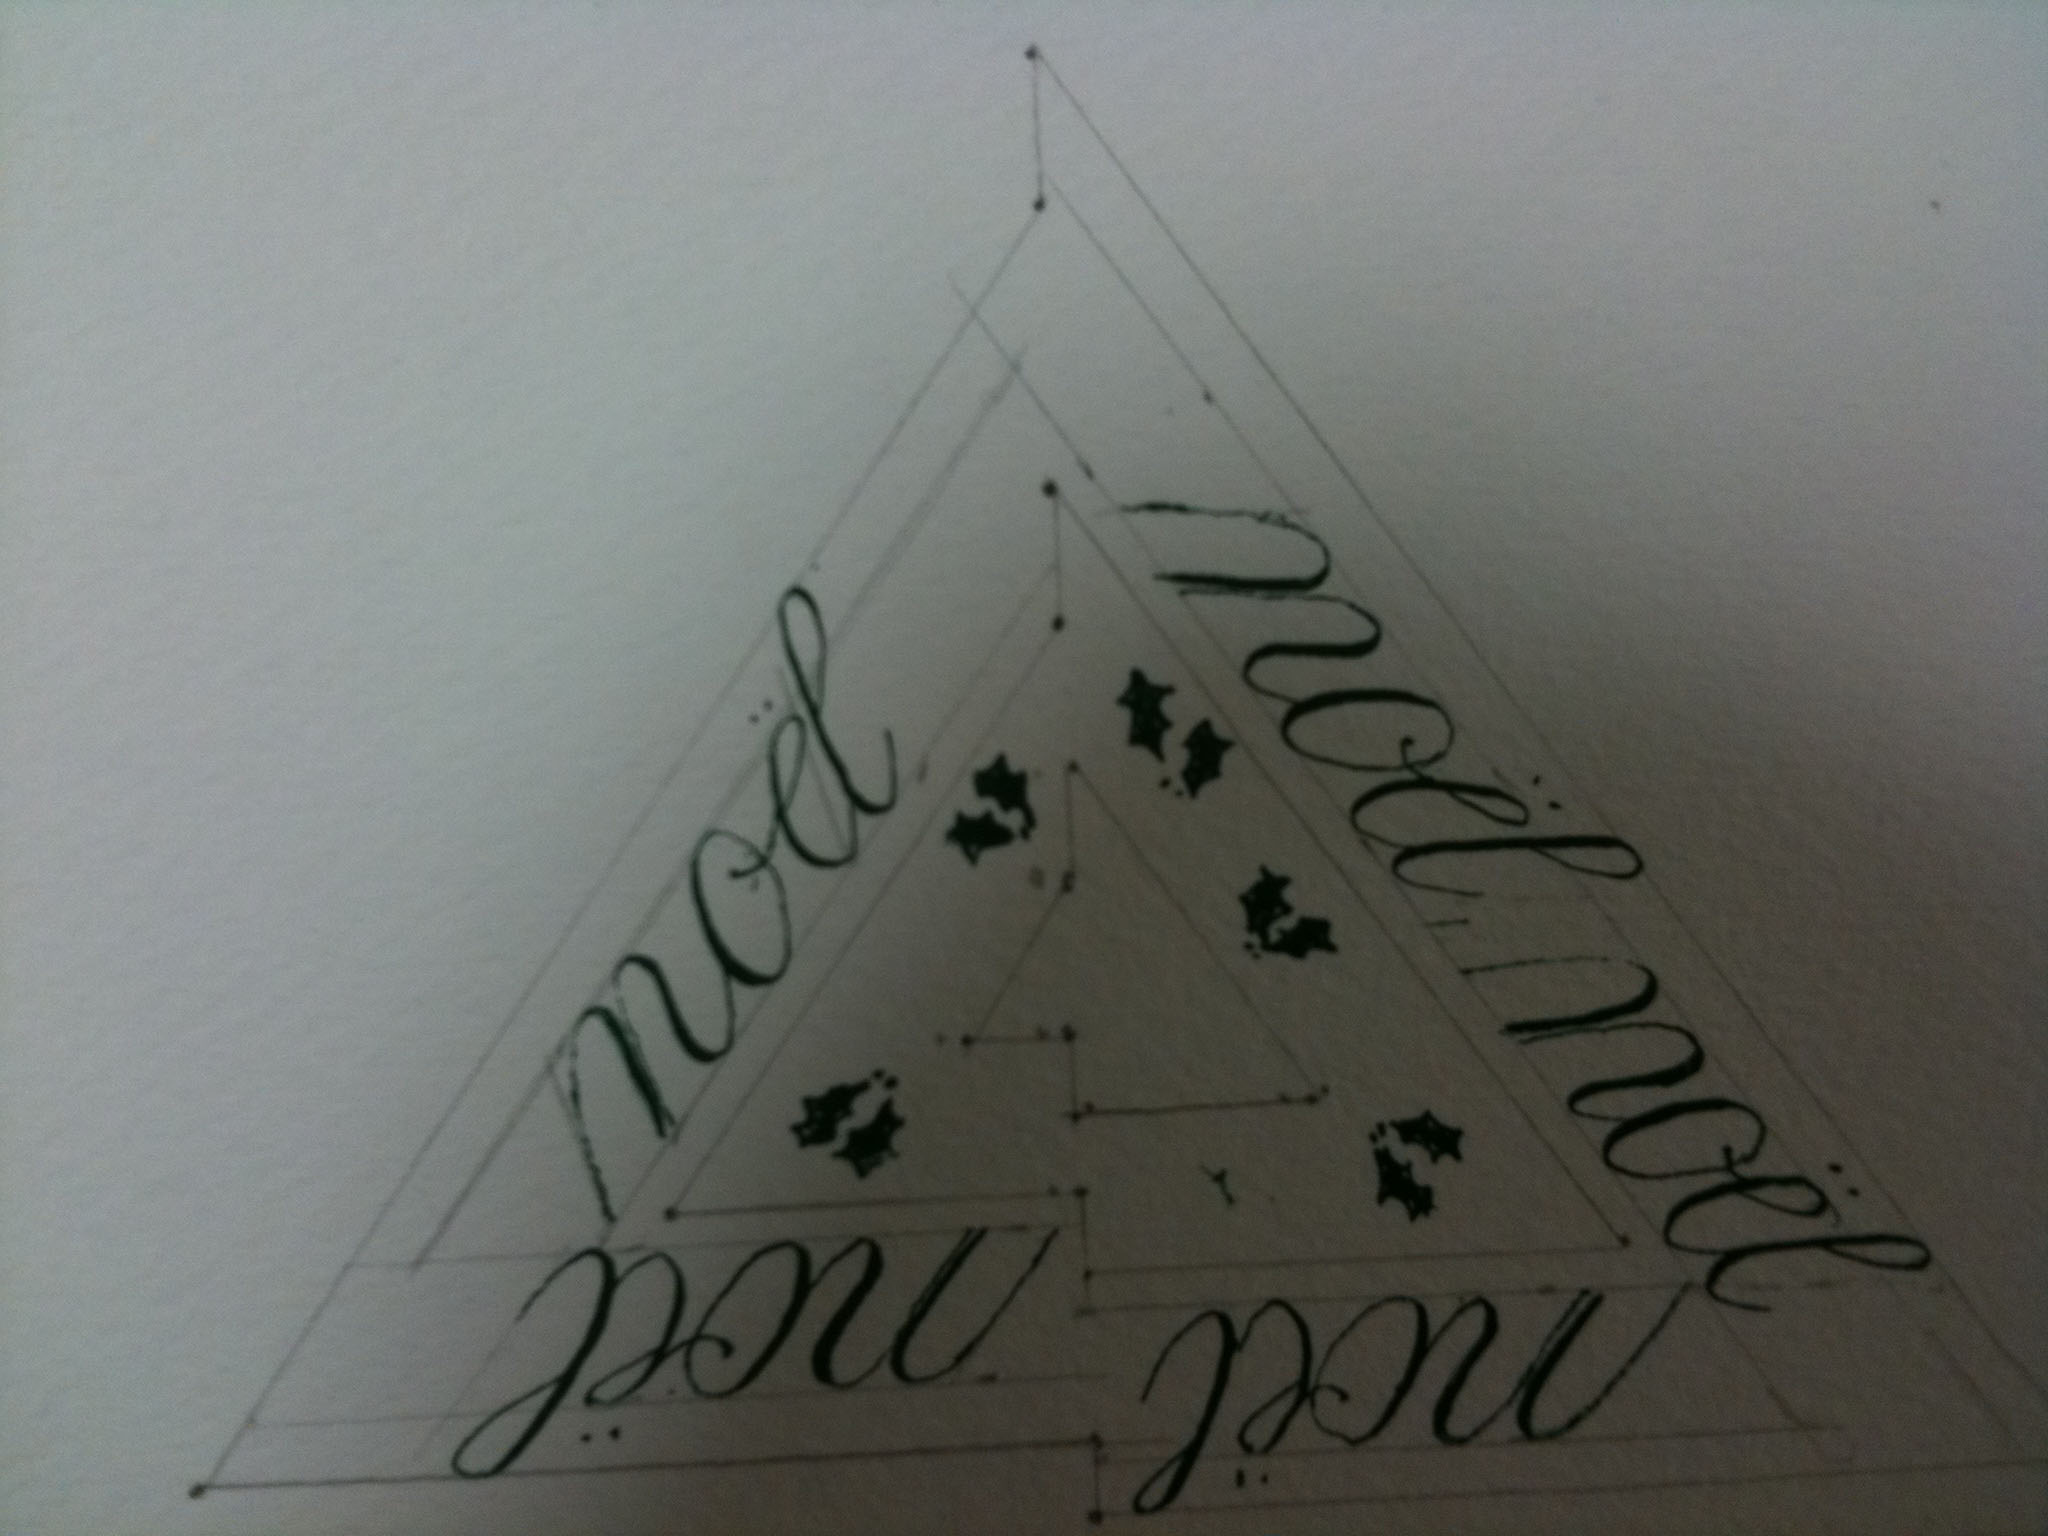 noël
noël noël
noël
noël